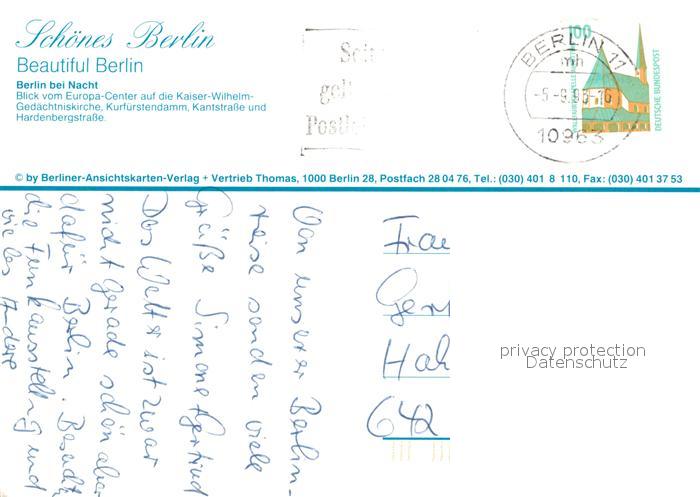 Schönes Berlin
Beautiful Berlin
Berlin bei Nacht
Blick vom Europa-Center auf die Kaiser-Wilhelm-
Gedächtniskirche, Kurfürstendamm, Kantstraße und
Hardenbergstraße.
Seit
gelt
Postlei
BERLIN 11
mh
-5.-9.93-16
10963
100
DEUTSCHE BUNDESPOST
© by Berliner-Ansichtskarten-Verlag + Vertrieb Thomas, 1000 Berlin 28, Postfach 28 04 76, Tel.: (030) 401 8 110, Fax: (030) 401 37 53
Von unserer Berlin-
reise senden viele
Grüße Simone + Gertrud
Das Wetter ist zwar
nicht gerade schön aber
dafür Berlin. Besucht
die Funkausstellung und
vieles Andere
Frau
Ger
Hah
642
privacy protection
Datenschutz